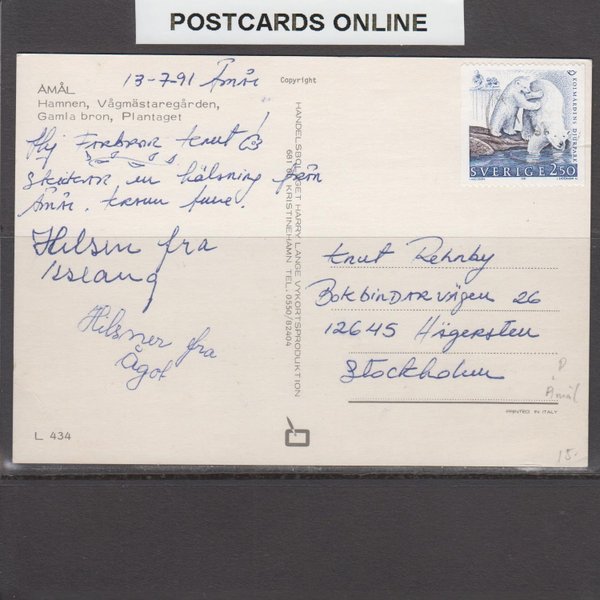 POSTCARDS ONLINE
13-7-91 Åmål
ÅMÅL
Hamnen, Vågmästaregården,
Gamla bron, Plantaget
Hej FARBROR Knut!
SKICKAR en hälsning från
Åmål. Kram
Hilsen fra
Hilsner fra
Ågot
L 434
Copyright
HANDELSBOLAGET HARRY LANGE VYKORTSPRODUKTION
681 KRISTINEHAMN TEL. 0550/82404
KOLMÅRDENS DJURPARK
SVERIGE 250
Knut Rehnby
BOKBINDARVägen 26
12645 Hägersten
Stockholm
PRINTED IN ITALY
P
Åmål
15:-